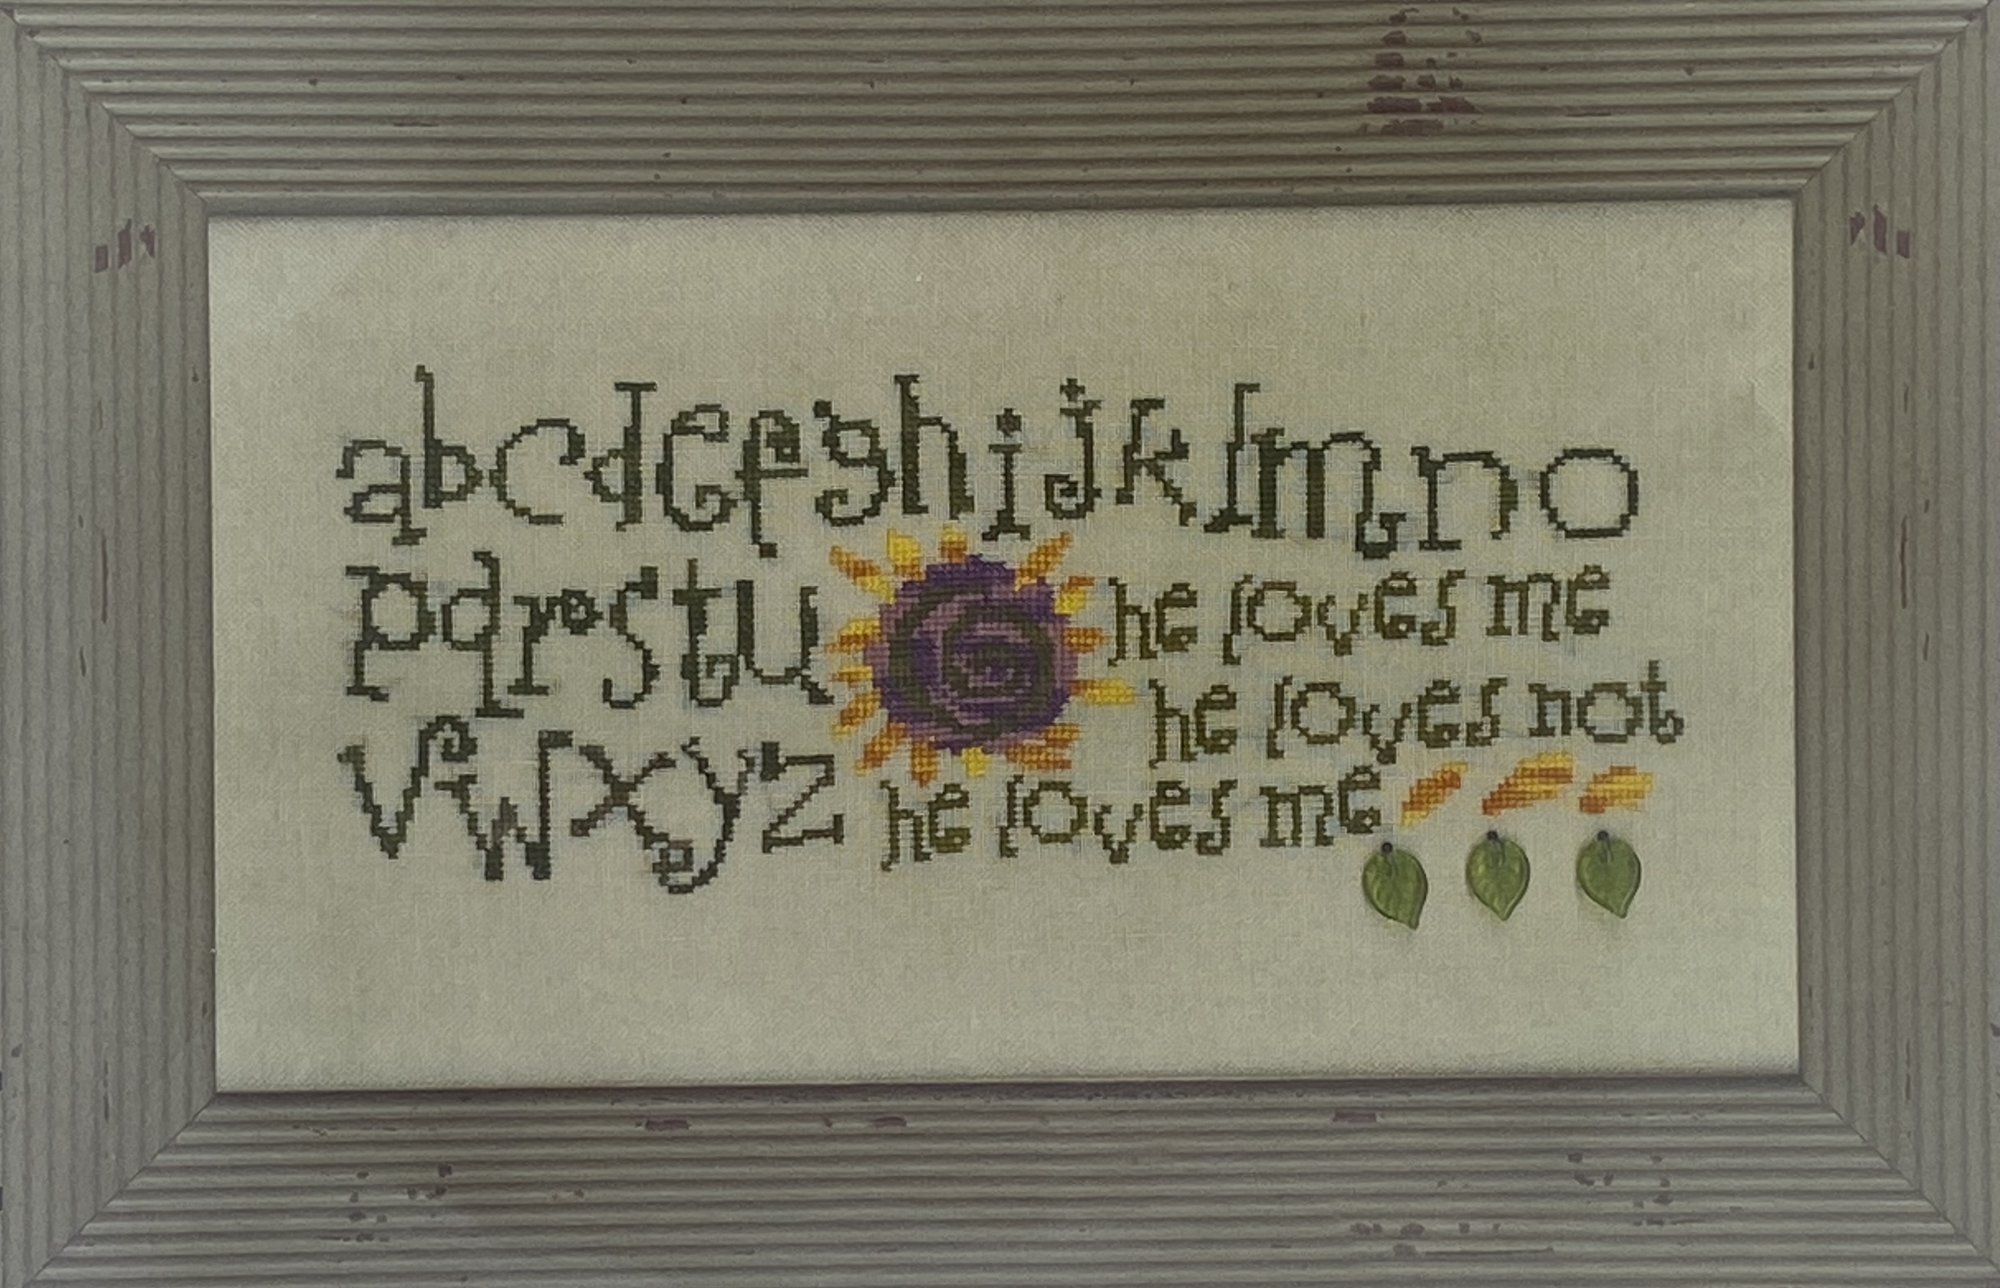 abcdefghijklmno
pqrstu he loves me
he loves not
vwxyz he loves me